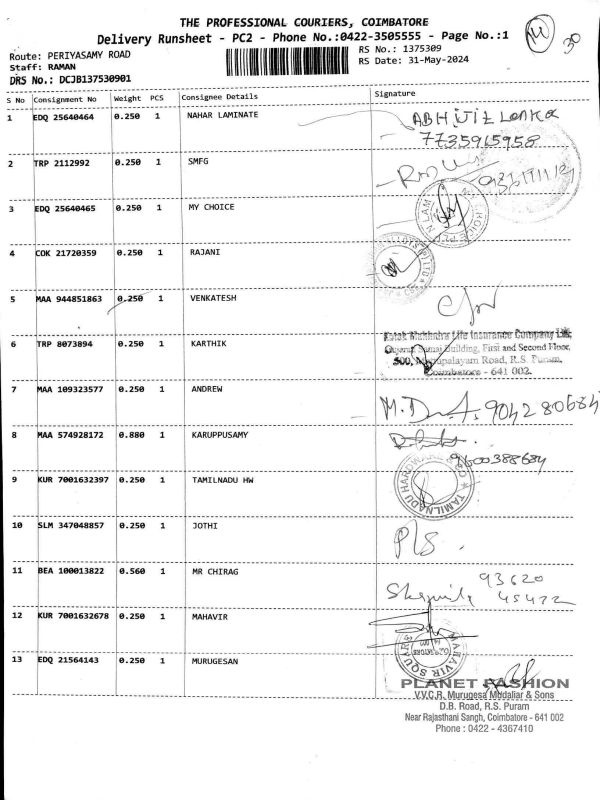 THE PROFESSIONAL COURIERS, COIMBATORE
Delivery Runsheet - PC2 - Phone No.:0422-3505555 - Page No.:1
Route: PERIYASAMY ROAD
RS No.: 1375309
30
Staff: RAMAN
RS Date: 31-May-2024
DRS No.: DCJB137530901
S No Consignment No Weight PCS Consignee Details Signature
1 EDQ 25640464 0.250 1 NAHAR LAMINATE
7735915958
2 TRP 2112992 0.250 1 SMFG
3 EDQ 25640465 0.250 1 MY CHOICE
4 COK 21720359 0.250 1 RAJANI
5 MAA 944851863 0.250 1 VENKATESH
6 TRP 8073894 0.250 1 KARTHIK
Kotak Mahindra Life Insurance Company Ltd,
Building, First and Second Floor,
500, Mettupalayam Road, R.S. Puram,
Coimbatore - 641 002.
7 MAA 109323577 0.250 1 ANDREW
9042 80684
8 MAA 574928172 0.880 1 KARUPPUSAMY
9600388684
9 KUR 7001632397 0.250 1 TAMILNADU HW
TAMILNADU HARDWARE
10 SLM 347048857 0.250 1 JOTHI
11 BEA 100013822 0.560 1 MR CHIRAG
93620
45422
12 KUR 7001632678 0.250 1 MAHAVIR
MAHAVIR SQUARE
13 EDQ 21564143 0.250 1 MURUGESAN
PLANET FASHION
V.V.C.R. Murugesa Mudaliar & Sons
D.B. Road, R.S. Puram
Near Rajasthani Sangh, Coimbatore - 641 002
Phone : 0422 - 4367410